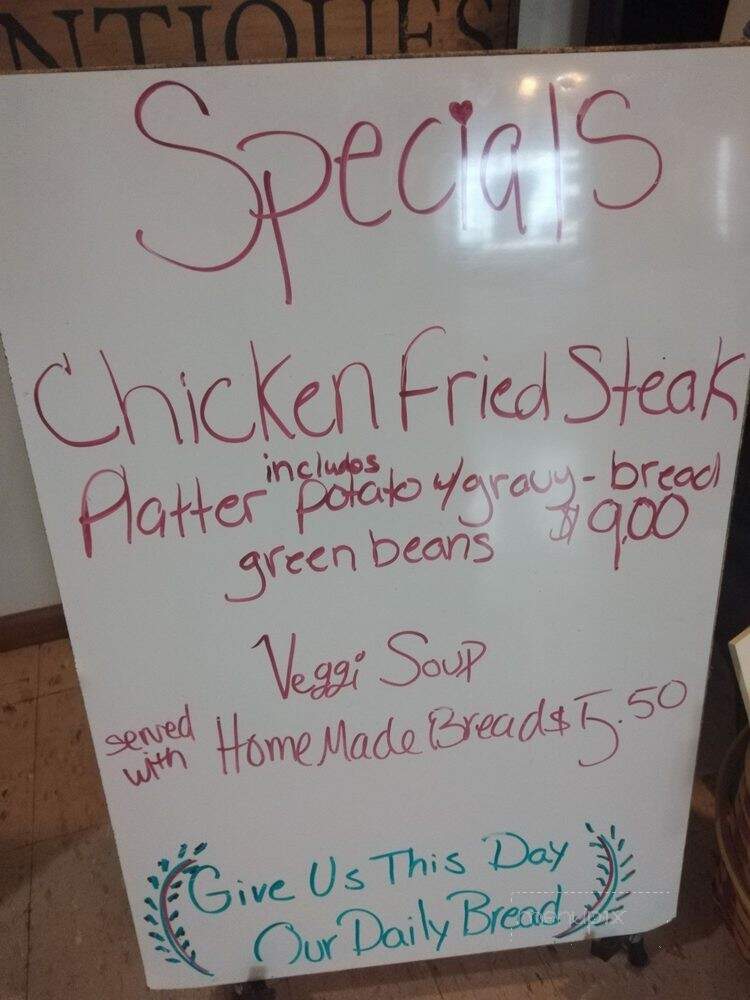 NTIQUES
Specials
Chicken Fried Steak
Platter includes potato w/gravy - bread
green beans $9.00
Veggi Soup
served with Home Made Bread $5.50
Give Us This Day
Our Daily Bread
menupix